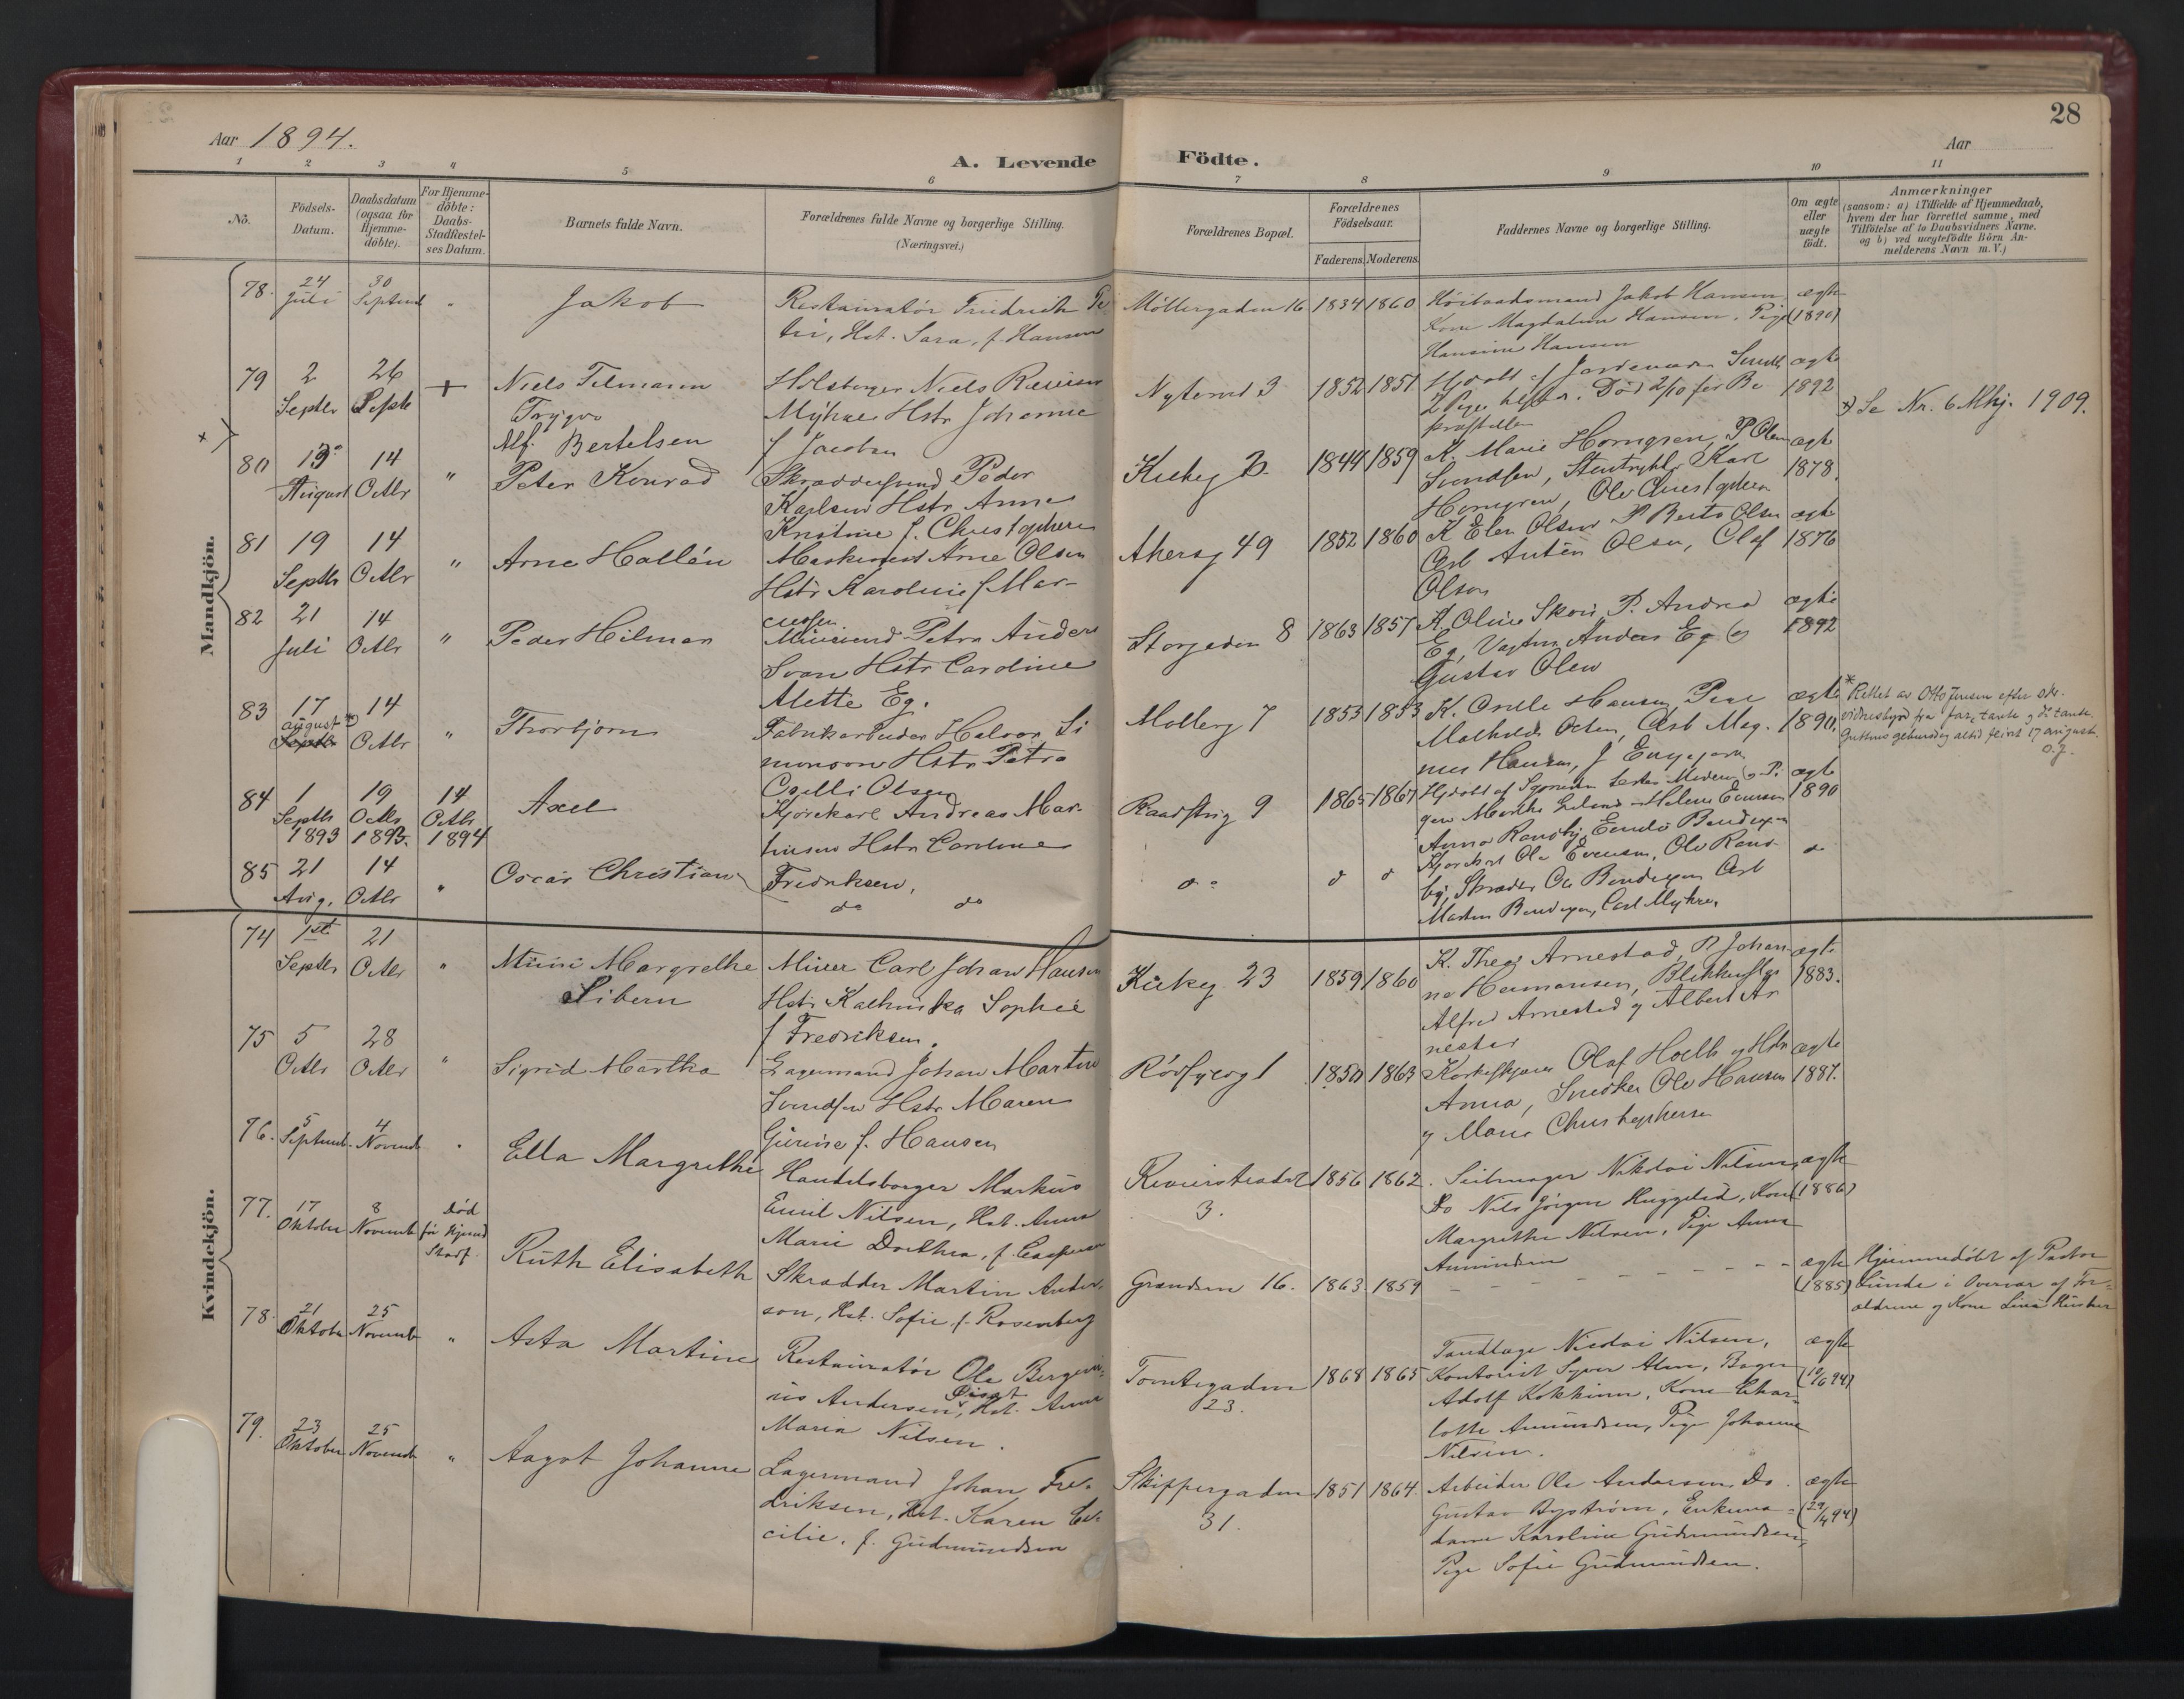 28
Aar 1894.
A. Levende Födte.
Aar
1 2 3 4 5 6 7 8 9 10 11
No.
Födsels-Datum.
Daabsdatum (ogsaa for Hjemme-döbte).
For Hjemme-döbte: Daabs-Stadfestel-ses Datum.
Barnets fulde Navn.
Forældrenes fulde Navne og borgerlige Stilling. (Næringsvei.)
Forældrenes Bopæl.
Forældrenes Födselsaar.
Faderens. Moderens.
Faddernes Navne og borgerlige Stilling.
Om ægte eller uægte født.
Anmærkninger
(saasom: a) i Tilfælde af Hjemmedaab,
hvem der har forrettet samme, med
Tilföielse af to Daabsvidners Navne.
og b) ved uægtefödte Börn An-
melderens Navn m.V.)
Mandkjön.
78. 24 Juli 30 Septemb " Jakob
Restauratør Friedrich Pe-
tri, Hst. Sara, f. Hansen
Möllergaden 16 1834 1860
Jakob Hansen,
Kone Magdalena Hansen, Pige
Hansine Hansen
ægte (1890)
79 2 Septbr 26 Septb + Niels Tilmann
Trygve
Niels
Myhre Hstr Johanne
f Jacobsen
3 1852 1851
ægte 1892
× Alf Bertelsen
×) Se Nr. 6 Mkj. 1909.
80 13 August 14 Octbr " Peter Konrad
Skræddersvend Peder
Karlsen Hstr Anne
Kristine f. Christophersen
1844 1859
K. Marie Horngren, P Olea
Svendsen, Karl
Horngren, Ole Christophersen
ægte 1878.
81 19 Septbr 14 Octbr " Arne Hallén
Maskinist Arne Olsen
Hstr Karoline f Mar-
cussen
Akersg 49 1852 1860
K Elen Olsen P Berte Olsen
Carl Anton Olsen, Olaf
Olsen
ægte 1876
82 21 Juli 14 Octbr " Peder Hilmar
Petro Anders
Svan Hstr Caroline
Alette Eg.
Storgaden 8 1863 1857
K. Oline Skoii P. Andrea
Eg, Anders Eg og
Gustav Olsen
ægte 1892
83 17 august *) Septbr 14 Octbr " Thorbjørn
Fabrikarbeider Halvor Si
monsen Hstr Petra
Oselli Olsen
Mollerg 7 1853 1853
K. Hansen, Pige
Mathilde Olsen, Carl Mag-
nus Hansen, J
ægte 1890,
* Rettet av Otto Jensen efter skr.
vidnesbyrd fra far, tante og dåtante.
Guttens geburtsdag altid feiret 17 august.
O.J.
84 1 Septbr 1893 19 Octbr 1893. 14 Octbr 1894 Axel
Kjørekarl Andreas Mar-
tinsen Hstr Caroline
Fredriksen.
9 1865 1867
Helene Evensen
Anna Ranby, Emilie Bendixen
Kjørekarl Ole Evensen, Ole Ran-
by, Skræder Ole Bendixen Carl
Martin Bendixen, Carl Myhre.
ægte 1890
85 21 Aug. 14 Octbr " Oscar Christian
do do
do d d do
Kvindekjön.
74 1ste Septbr 21 Octbr " Mimi Margrethe
Sibern
Murer Carl Johan Hansen
Hstr Kathinka Sophie
f Fredriksen.
Kirkeg. 23 1859 1860
K. Thea Arnestad, P Johan-
ne Hermansen,
Alfred Arnestad og Albert Ar
nestad
ægte 1883.
75 5 Octbr 28 Octbr " Sigrid Martha
Lagermand Johan Martin
Svendsen Hstr Maren
Gurine f. Hansen
1 1850 1863
Olaf Holth og Hstr
Anna, Snedker Ole Hansen
og Marie Christophersen
ægte 1887.
76. 5 Septemb. 4 Novemb " Ella Margrethe
Handelsborger Markus
Emil Nilsen, Hst. Anna
Marie Dorthea, f. Caspersen
Revierstrædet 3. 1856 1862.
Seilmager Nikolai Nilsen,
Do Nils Jörgen Huggelid, Kone
Margrethe Nilsen, Pige Anna
Amundsen
ægte (1886)
77. 17 Oktober 8 Novemb Död før Hjemd Stadf. Ruth Elisabeth
Skrædder Martin Ander-
son, Hst. Sofie, f. Rosenberg
Grændsen 16. 1863 1859
- - - - - - - -
ægte (1885)
Hjemmedöbt af Pastor
Lunde i Overvær af For-
ældrene og Kone Lina
78. 21 Oktober 25 Novemb " Asta Martine
Restauratør Ole Bergeni-
us Andersen, Hst. Anna
Maria Nilsen.
Tomtegaden 23. 1868 1865
Tandlæge Nicolai Nilsen,
Kontorist Syver Alm, Bager
Adolf Kokkinn, Kone Char-
lotte Amundsen, Pige Johanne
Nilsen.
ægte (19/6 94)
79. 23 Oktober 25 Novemb " Aagot Johanne
Lagermand Johan Fre-
driksen, Hst. Karen Ce-
cilie, f. Gudmundsen
Skippergaden 31. 1851 1864.
Arbeider Ole Andersen, Do
Gustav Byström, Enkema-
dame Karoline Gudmundsen,
Pige Sofie Gudmundsen.
ægte (29/4 94)